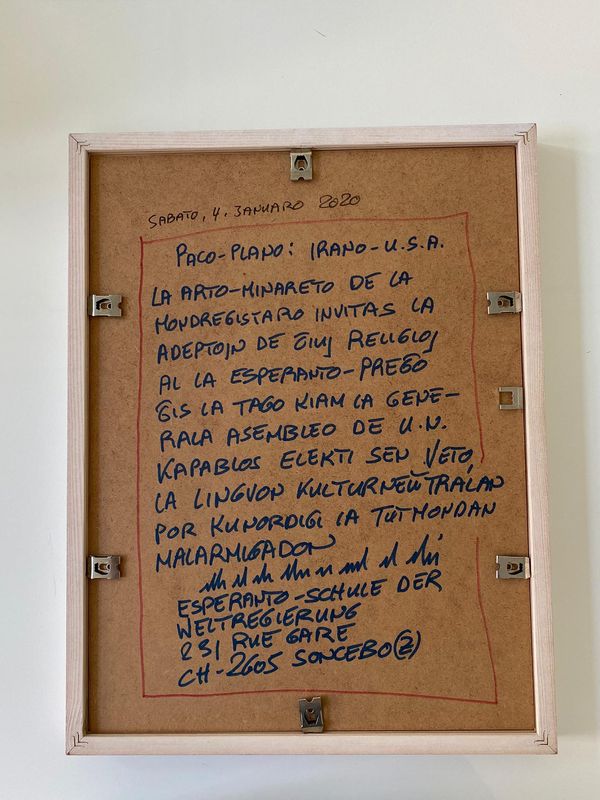 SABATO, 4. JANUARO 2020
PACO-PLANO: IRANO-U.S.A.
LA ARTO-MINARETO DE LA
MONDREGISTARO INVITAS LA
ADEPTOJN DE ĈIUJ RELIGIOJ
AL LA ESPERANTO-PREĜO
ĜIS LA TAGO KIAM LA GENE-
RALA ASEMBLEO DE U.N.
KAPABLOS ELEKTI SEN VETO,
LA LINGVON KULTURNEŬTRALAN
POR KUNORDIGI LA TUTMONDAN
MALARMIGADON
ESPERANTO-SCHULE DER
WELTREGIERUNG
231 RUE GARE
CH-2605 SONCEBO(Z)